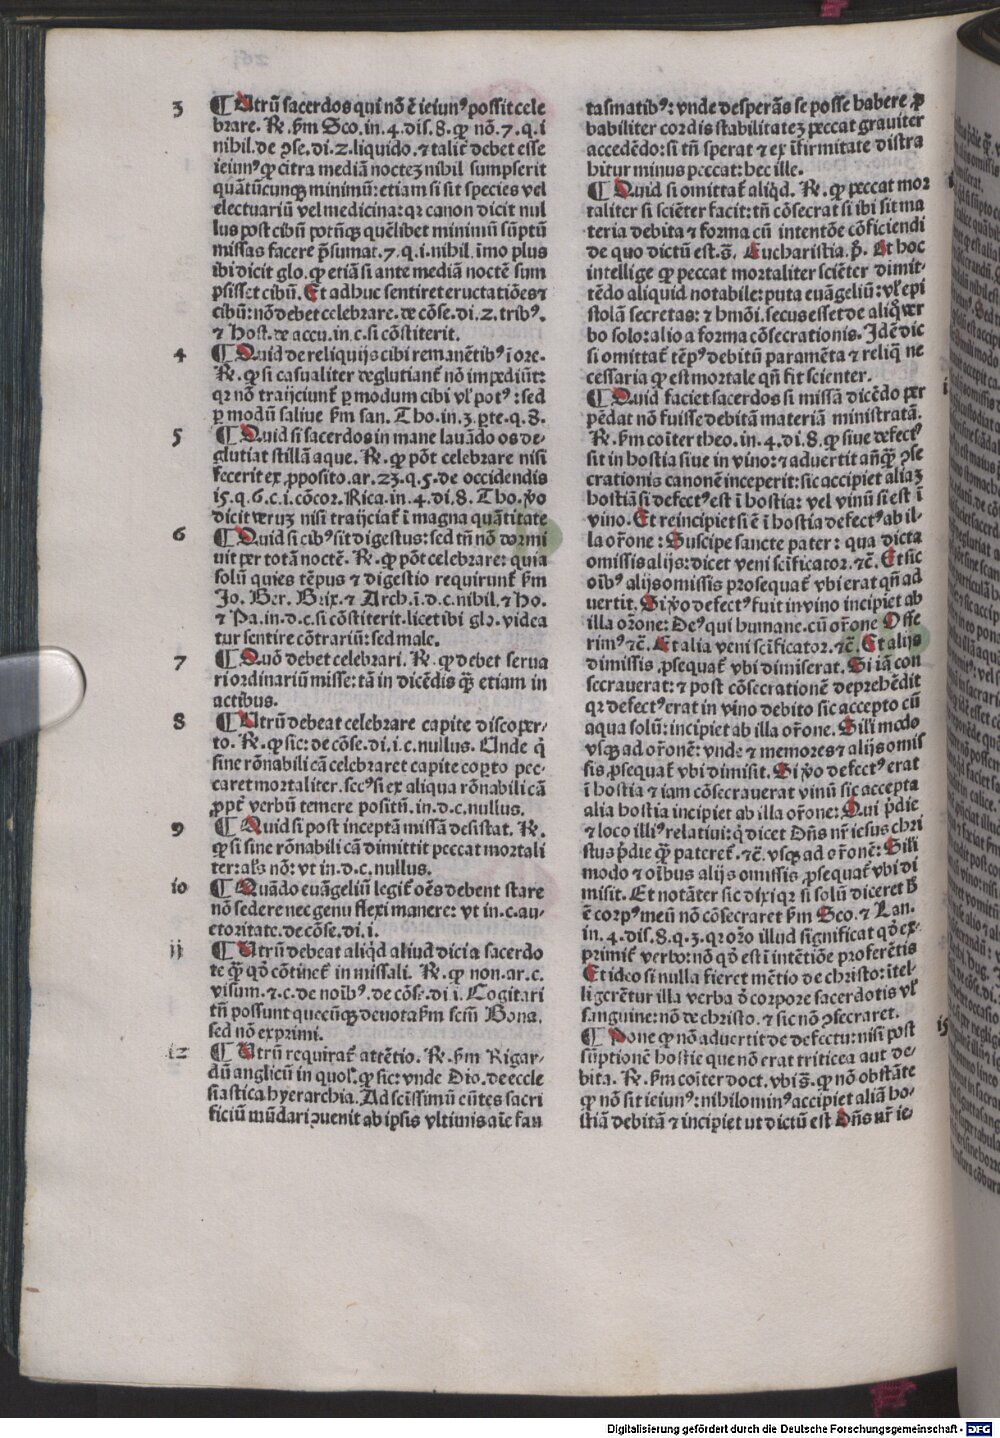 3 ¶ Utrū sacerdos qui nō ē ieiunꝰ possit cele
brare. R̄. ẜm Sco. in. 4. dis. 8. ꝙ nō. 7. q. i
nihil. de ꝯse. di. 2. liquido. ⁊ talit̄ debet esse
ieiunꝰ ꝙ citra mediā noctez nihil sumpserit
quātūcunqꝫ minimū: etiam si sit species vel
electuariū vel medicina: qꝛ canon dicit nul
lus post cibū potūqꝫ quēlibet minimū sūptū
missas facere p̄sumat. 7. q. i. nihil. īmo plus
ibi dicit glo. ꝙ etiā si ante mediā noctē sum
psisset cibū. Et adhuc sentiret eructatiōes ⁊
cibū: nō debet celebrare. de cōse. di. 2. tribꝰ.
⁊ Host. de accu. in. c. si cōstiterit.
4 ¶ Quid de reliquijs cibi remanētibꝰ ī ore.
R̄. ꝙ si casualiter deglutianť nō impediūt:
qꝛ nō traijciunť ꝑ modum cibi vľ potꝰ: sed
ꝑ modū saliue ẜm san. Tho. in. 3. ꝑte. q. 8.
5 ¶ Quid si sacerdos in mane lauādo os de-
glutiat stillā aque. R̄. ꝙ pōt celebrare nisi
fecerit ex ꝓposito. ar. 23. q. 5. de occidendis
i5. q. 6. c. i. cōcor. Rica. in. 4. di. 8. Tho. v̊o
dicit veruz nisi traijciať ī magna quātitate
6 ¶ Quid si cibꝰ sit digestus: sed tn̄ nō dormi
uit per totā noctē. R̄. ꝙ pōt celebrare: quia
solū quies tēpus ⁊ digestio requirunť ẜm
Jo. Ber. Brix. ⁊ Arch. ī. d. c. nihil. ⁊ ho.
⁊ Pa. in. d. c. si cōstiterit. licet ibi glo. videa
tur sentire cōtrariū: sed male.
7 ¶ Quō debet celebrari. R̄. ꝙ debet serua
ri ordinariū misse: tā in dicēdis qꝫ̄ etiam in
actibus.
8 ¶ Utrū debeat celebrare capite discoper-
to. R̄. ꝙ sic: de cōse. di. i. c. nullus. Unde q̇
sine rōnabili cā celebraret capite coꝑto pec-
caret mortaliter. secꝰ si ex aliqua rōnabili cā
ꝓpť verbū temere positū. in. d. c. nullus.
9 ¶ Quid si post inceptā missā desistat. R̄.
ꝙ si sine rōnabili cā dimittit peccat mortali
ter: als̄ nō: vt in. d. c. nullus.
io ¶ Quādo euāgeliū legiť oēs debent stare
nō sedere nec genu flexi manere: vt in. c. au-
ctoritate. de cōse. di. i.
ii ¶ Utrū debeat aliqd̄ aliud dici a sacerdo
te qꝫ̄ qd̄ cōtineť in missali. R̄. ꝙ non. ar. c.
visum. ⁊. c. de noībꝰ. de cōse. di. i. Cogitari
tn̄ possunt quecūqꝫ deuota ẜm scm̄ Bona.
sed nō exprimi.
i2 ¶ Utrū requirať attētio. R̄. ẜm Rigar-
dū anglicū in quol'. ꝙ sic: vnde Dio. de eccle
siastica hyerarchia. Ad scissimū eūtes sacri
ficiū mūdari ꝯuenit ab ipsis vltimis aīe fan
tasmatibꝰ: vnde desperās se posse habere ꝓ
babiliter cordis stabilitatez peccat grauiter
accedēdo: si tn̄ sperat ⁊ ex īfirmitate distra
hitur minus peccat: hec ille.
¶ Quid si omittať aliqd̄. R̄. ꝙ peccat mor
taliter si sciēter facit: tn̄ cōsecrat si ibi sit ma
teria debita ⁊ forma cū intentōe cōficiendi
de quo dictū est. s̄. Eucharistia. p̊. Et hoc
intellige ꝙ peccat mortaliter sciēter dimit-
tēdo aliquid notabile: puta euāgeliū: vľ epi
stolā secretas: ⁊ hmōi. secus esset de aliq̊ ver
bo solo: alio a forma cōsecrationis. Jdē dic
si omittať tēpꝰ debitū paramēta ⁊ reliq̄ ne
cessaria ꝙ est mortale qn̄ fit scienter.
¶ Quid faciet sacerdos si missā dicēdo per
pēdat nō fuisse debitā materiā ministratā.
R̄. ẜm coīter theo. in. 4. di. 8. ꝙ siue defectꝰ
sit in hostia siue in vino: ⁊ aduertit anqꝫ̄ ꝯse
crationis canonē inceperit: sic accipiet aliaꝫ
hostiā si defectꝰ est ī hostia: vel vinū si est ī
vino. Et reincipiet si ē ī hostia defectꝰ ab il-
la or̄one: Suscipe sancte pater: qua dicta
omissis alijs: dicet veni scīficator. ⁊c̄. Et sic
oībꝰ alijs omissis prosequať vbi erat qn̄ ad
uertit. Si v̊o defectꝰ fuit in vino incipiet ab
illa or̄one: Deꝰ qui humane. cū or̄one Offe
rimꝰ ⁊c̄. Et alia veni scīficator. ⁊c̄. Et alijs
dimissis ꝓsequať vbi dimiserat. Si iā con
secrauerat: ⁊ post cōsecrationē deprehēdit
qꝛ defectꝰ erat in vino debito sic accepto cū
aqua solū: incipiet ab illa or̄one. Sil'i modo
vsqꝫ ad or̄onē: vnde ⁊ memores ⁊ alijs omis
sis ꝓsequať vbi dimisit. Si v̊o defectꝰ erat
ī hostia ⁊ iam cōsecrauerat vinū sic accepta
alia hostia incipiet ab illa or̄one: Qui p̄die
⁊ loco illiꝰ relatiui: q̇ dicet Dn̄s nr̄ iesus chri
stus p̄die qꝫ̄ patereť. ⁊c̄. vsqꝫ ad or̄onē: Sil'i
modo ⁊ oībus alijs omissis ꝓsequať vbi di
misit. Et notāter sic dixi qꝛ si solū diceret h̄
ē corpꝰ meū nō cōsecraret ẜm Sco. ⁊ Lan.
in. 4. dis. 8. q. 3. qꝛ or̄o illud significat qd̄ ex-
primiť verbo: nō qd̄ est ī intētiōe proferētis
Et ideo si nulla fieret mētio de christo: ītel-
ligerētur illa verba d̄ corpore sacerdotis vľ
sanguine: nō de christo. ⁊ sic nō ꝯsecraret.
¶ Pone ꝙ nō aduertit de defectu: nisi post
sūptionē hostie que nō erat triticea aut de-
bita. R̄. ẜm coīter doct. vbi s̄. ꝙ nō obstāte
ꝙ nō sit ieiunꝰ: nihilominꝰ accipiet aliā ho-
stiā debitā ⁊ incipiet ut dictū est Dn̄s nr̄ ie-
Digitalisierung gefördert durch die Deutsche Forschungsgemeinschaft - DFG